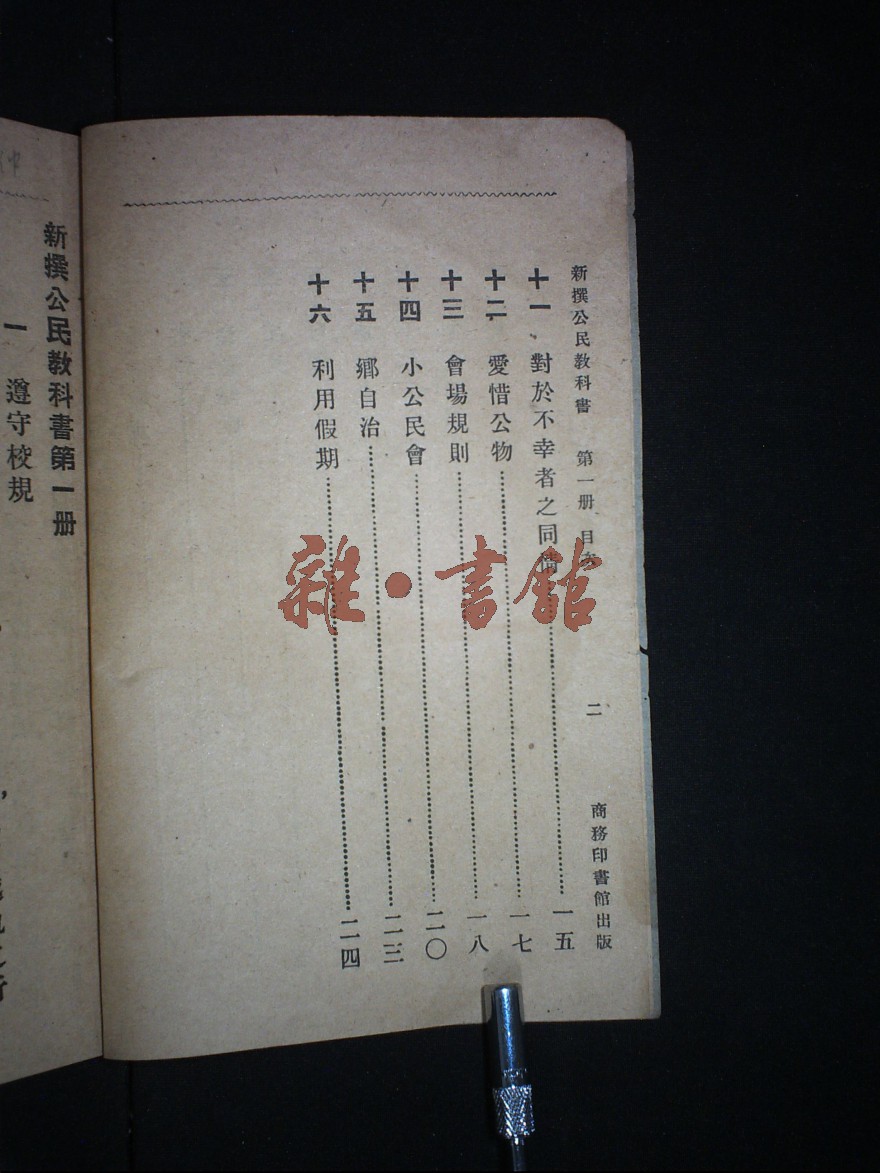 新撰公民教科書 第一册 目次 二 商務印書館出版
十一 對於不幸者之同情 一五
十二 愛惜公物 一七
十三 會場規則 一八
十四 小公民會 二〇
十五 鄉自治 二三
十六 利用假期 二四
新撰公民教科書第一册
一 遵守校規
雜·書館